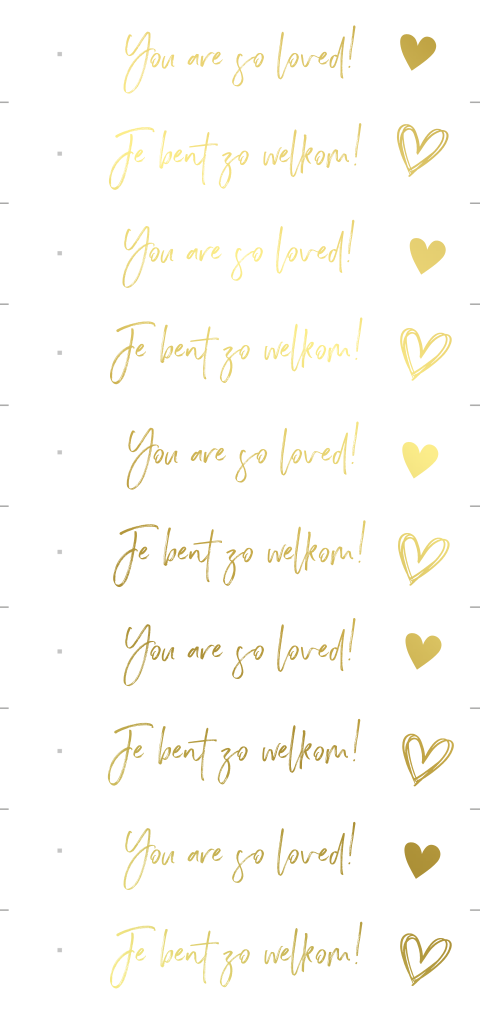 You are so loved!
Je bent zo welkom!
You are so loved!
Je bent zo welkom!
You are so loved!
Je bent zo welkom!
You are so loved!
Je bent zo welkom!
You are so loved!
Je bent zo welkom!